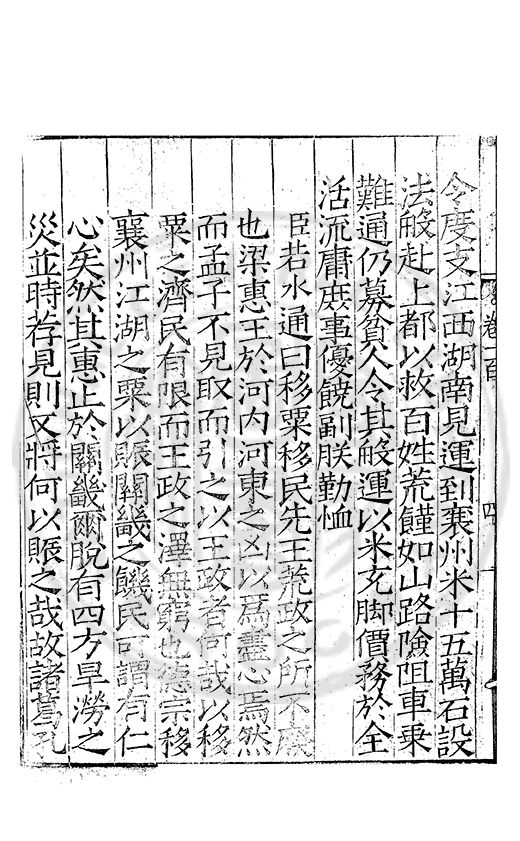 令度支江西湖南見運到襄州米十五萬石設
法般赴上都以救百姓荒饉如山路險阻車乗
難通仍募貧人令其般運以米充脚價務於全
活流庸庶事優饒副朕勤恤
臣若水通曰移粟移民先王荒政之所不廢
也梁惠王於河内河東之凶以爲盡心焉然
而孟子不見取而引之以王政者何哉以移
粟之濟民有限而王政之澤無窮也德宗移
襄州江湖之粟以賑關畿之饑民可謂有仁
心矣然其惠止於關畿爾脱有四方旱澇之
災並時荐見則又將何以賑之哉故諸葛孔
卷一百
四